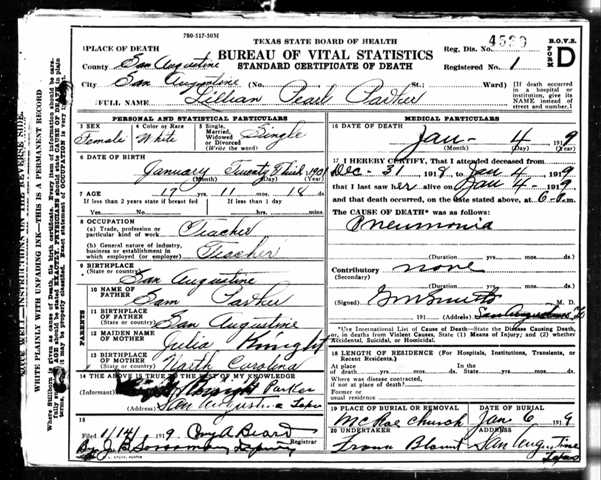 780-517-50M
TEXAS STATE BOARD OF HEALTH
BUREAU OF VITAL STATISTICS
STANDARD CERTIFICATE OF DEATH
B.O.V.S.
FORM D
Reg. Dis. No.
Registered No. 1
PLACE OF DEATH
County San Augustine
City San Augustine No. St. Ward)
[If death occurred in a hospital or institution, give its NAME instead of street and number.]
FULL NAME Lillian Pearl Parker
PERSONAL AND STATISTICAL PARTICULARS
3 SEX Female
4 Color or Race White
5 Single, Married, Widowed or Divorced (Write the word) Single
6 DATE OF BIRTH
January Twenty Third, 1901
(Month) (Day) (Year)
7 AGE 17 yrs. 11 mos. 18 ds.
If less than 2 years state if breast fed
If less than 1 day
Yes No hrs. min.
8 OCCUPATION
(a) Trade, profession or particular kind of work Teacher
(b) General nature of industry, business or establishment in which employed (or employer) Teacher
9 BIRTHPLACE (State or country) San Augustine
PARENTS
10 NAME OF FATHER Sam Parker
11 BIRTHPLACE OF FATHER (State or country) San Augustine
12 MAIDEN NAME OF MOTHER Julia Knight
13 BIRTHPLACE OF MOTHER (State or country) North Carolina
14 THE ABOVE IS TRUE TO THE BEST OF MY KNOWLEDGE
(Informant) Parker
(Address) San Augustine Texas
15
Filed 1/4 1919 Registrar
By Deputy
MEDICAL PARTICULARS
16 DATE OF DEATH
Jan- 4 1919
(Month) (Day) (Year)
17 I HEREBY CERTIFY, That I attended deceased from
Dec- 31 1918, to Jan 4, 1919
that I last saw her alive on Jan 4, 1919
and that death occurred, on the date stated above, at 6 m.
The CAUSE OF DEATH* was as follows:
Pneumonia
(Duration yrs. mos. ds.
Contributory none
(Secondary)
(Duration yrs. mos. ds.
(Signed) M. D.
191 (Address) San Augustine Tx
*Use International List of Cause of Death—State the Disease Causing Death, or, in deaths from Violent Causes, State (1) Means of Injury; and (2) whether Accidental, Suicidal, or Homicidal.
18 LENGTH OF RESIDENCE (For Hospitals, Institutions, Transients, or Recent Residents.)
At place of death yrs. mos. ds. State yrs. mos. ds.
Where was disease contracted, if not at place of death?
Former or usual residence
19 PLACE OF BURIAL OR REMOVAL McRae Church
DATE OF BURIAL Jan 6, 1919
20 UNDERTAKER Blount San Augustine Texas
WHITE PLAINLY WITH UNFADING INK—THIS IS A PERMANENT RECORD